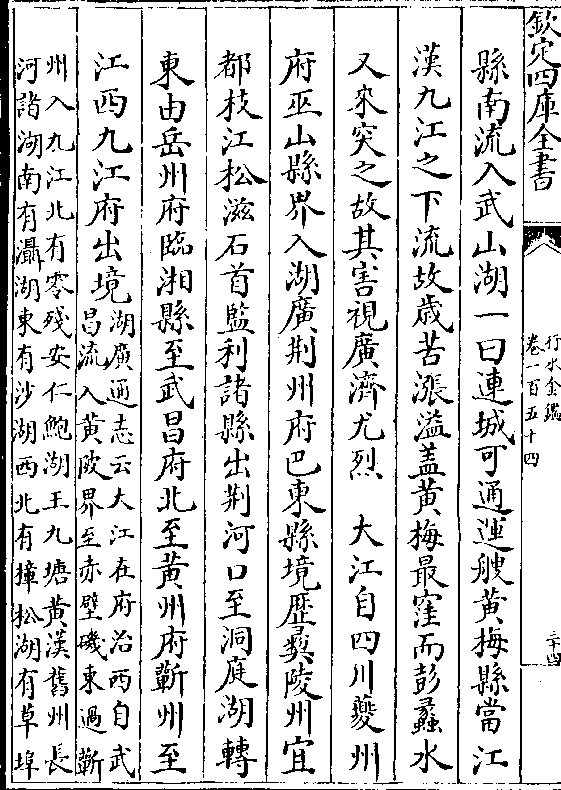 欽定四庫全書
行水金鑑
卷一百五十四
三十四
縣南流入武山湖一曰連城可通運艘黃梅縣當江
漢九江之下流故歲苦漲溢蓋黃梅最窪而彭蠡水
又來突之故其害視廣濟尤烈　大江自四川夔州
府巫山縣界入湖廣荆州府巴東縣境歷彛陵州宜
都枝江松滋石首監利諸縣出荆河口至洞庭湖轉
東由岳州府臨湘縣至武昌府北至黃州府蘄州至
江西九江府出境
湖廣通志云大江在府治西自武
昌流入黃陂界至赤壁磯東過蘄
州入九江北有零殘安仁鮑湖王九塘黃漢舊州長
河諸湖南有灄湖東有沙湖西北有㩧松湖有草埠